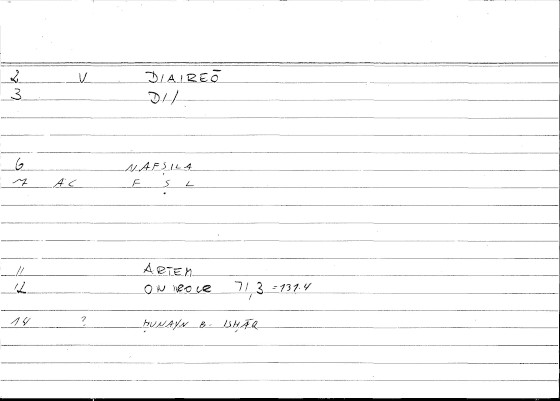 2 V DIAIREŌ
3 DI/
6 NAFṢILA
7 AC F Ṣ L
11 ARTEM
12 ONIROCR 71,3 = 131.4
14 ? ḤUNAYN B. ISḤĀR